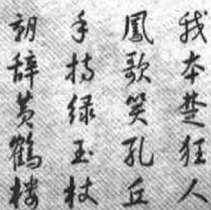 我本楚狂人
鳳歌笑孔丘
手持绿玉杖
朝辞黄鹤楼